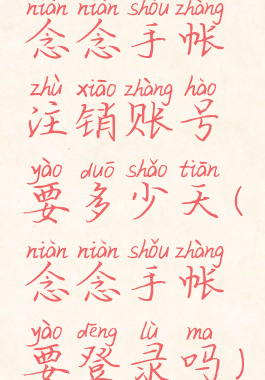 niàn niàn shǒu zhàng
念念手帐
zhù xiāo zhàng hào
注销账号
yào duō shǎo tiān
要多少天(
niàn niàn shǒu zhàng
念念手帐
yào dēng lù ma
要登录吗)